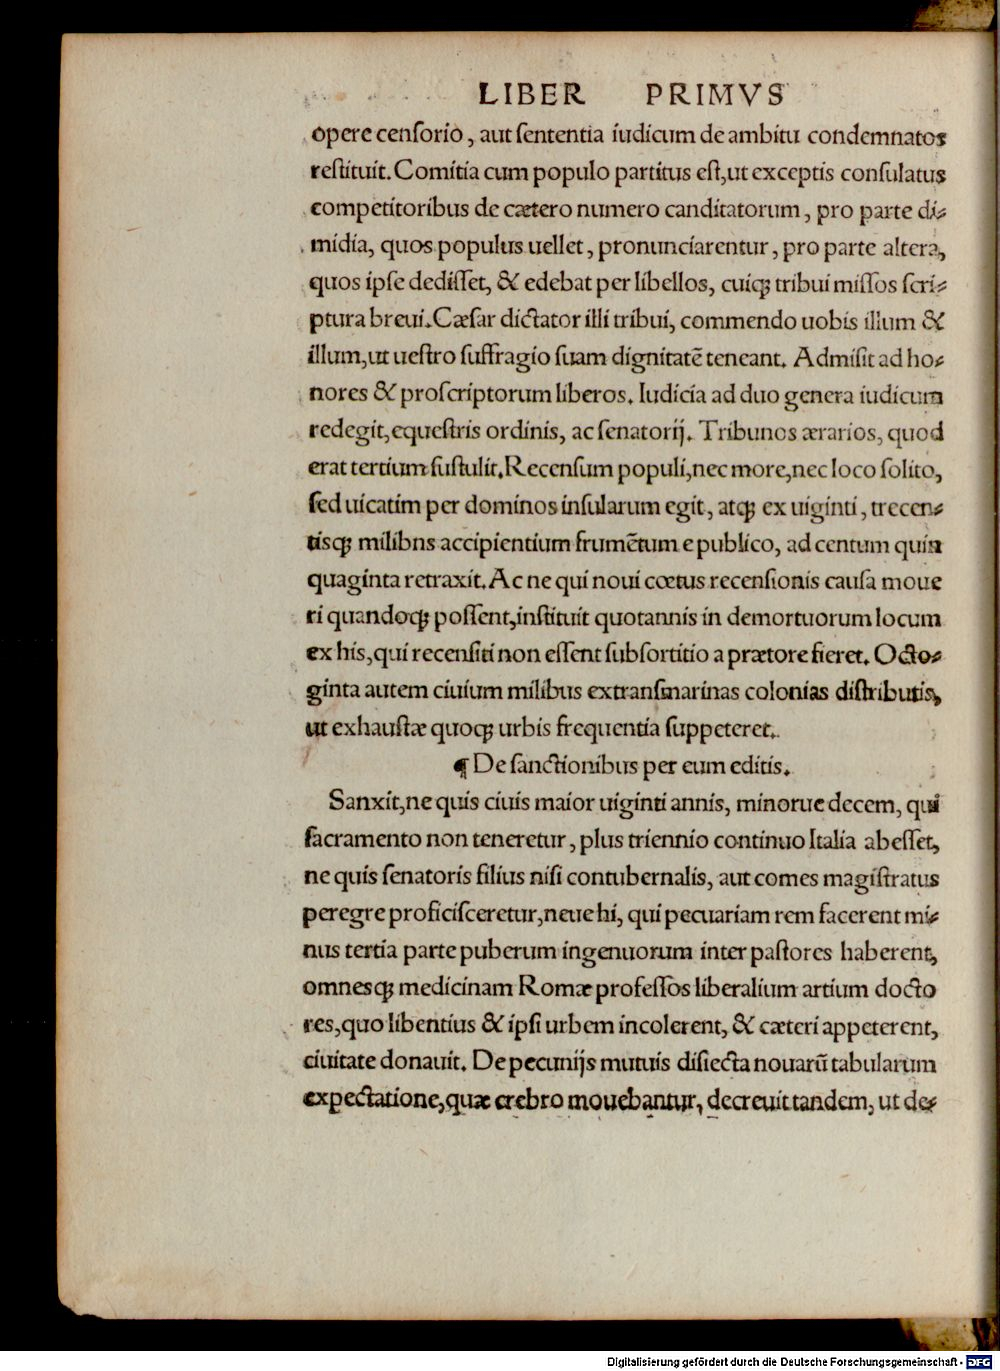 LIBER PRIMVS
opere cenſorio, aut ſententia iudicum de ambitu condemnatos
reſtituit. Comitia cum populo partitus eſt, ut exceptis conſulatus
competitoribus de cætero numero canditatorum, pro parte di⸗
midia, quos populus uellet, pronunciarentur, pro parte altera,
quos ipſe dediſſet, & edebat per libellos, cuiqꝫ tribui miſſos ſcri⸗
ptura breui. Cæſar dictator illi tribui, commendo uobis illum &
illum, ut ueſtro ſuffragio ſuam dignitatẽ teneant. Admiſit ad ho⸗
nores & proſcriptorum liberos. Iudicia ad duo genera iudicum
redegit, equeſtris ordinis, ac ſenatorij. Tribunos ærarios, quod
erat tertium ſuſtulit. Recenſum populi, nec more, nec loco ſolito,
ſed uicatim per dominos inſularum egit, atqꝫ ex uiginti, trecen⸗
tisqꝫ milibns accipientium frumẽtum e publico, ad centum quin
quaginta retraxit. Ac ne qui noui cœtus recenſionis cauſa moue
ri quandoqꝫ poſſent, inſtituit quotannis in demortuorum locum
ex his, qui recenſiti non eſſent subſortitio a prætore fieret. Octo⸗
ginta autem ciuium milibus extranſmarinas colonias diſtributis,
ut exhauſtæ quoqꝫ urbis frequentia ſuppeteret.
¶ De ſanctionibus per eum editis.
Sanxit, ne quis ciuis maior uiginti annis, minorue decem, qui
ſacramento non teneretur, plus triennio continuo Italia abeſſet,
ne quis ſenatoris filius niſi contubernalis, aut comes magiſtratus
peregre proficiſceretur, neue hi, qui pecuariam rem facerent mi⸗
nus tertia parte puberum ingenuorum inter paſtores haberent,
omnesqꝫ medicinam Romæ profeſſos liberalium artium docto
res, quo libentius & ipſi urbem incolerent, & cæteri appeterent,
ciuitate donauit. De pecunijs mutuis diſiecta nouarũ tabularum
expectatione, quæ crebro mouebantur, decreuit tandem, ut de⸗
Digitalisierung gefördert durch die Deutsche Forschungsgemeinschaft - DFG